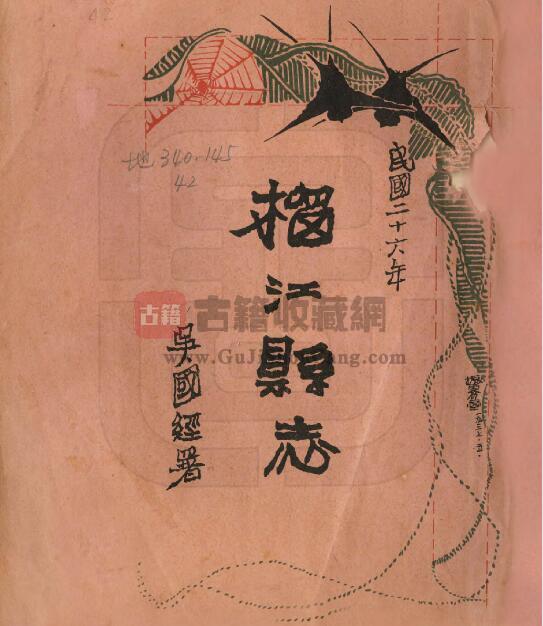 地 340.145
42
民國二十六年
榴江縣志
吳國經署
一九三七.五.
古籍
古籍收藏網